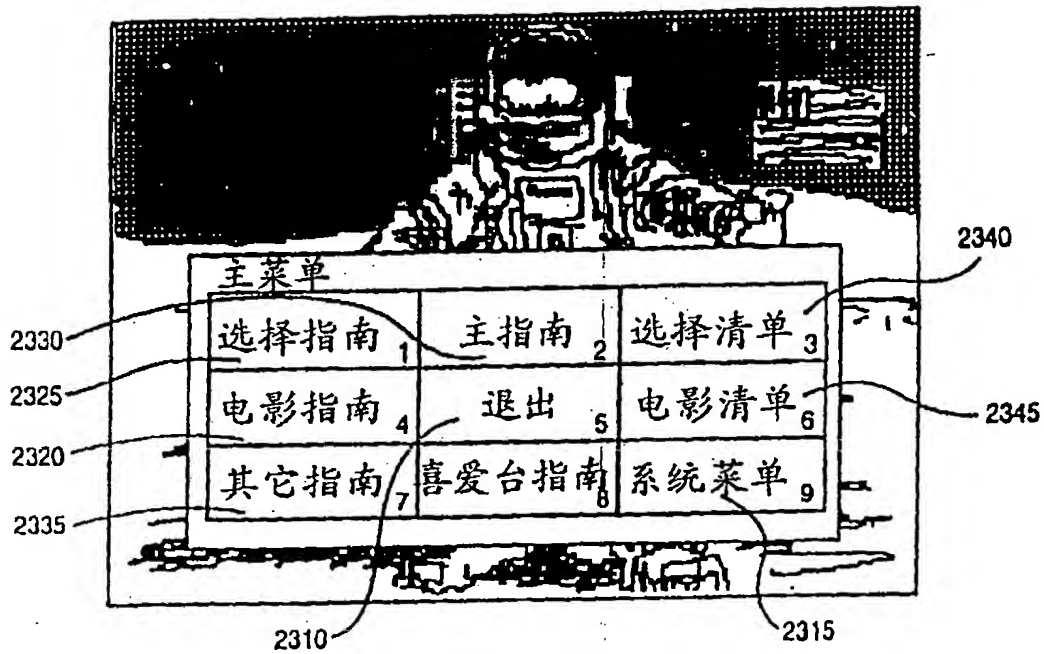 主菜单
选择指南 1 主指南 2 选择清单 3
电影指南 4 退出 5 电影清单 6
其它指南 7 喜爱台指南 8 系统菜单 9
2330
2325
2320
2335
2310
2315
2340
2345